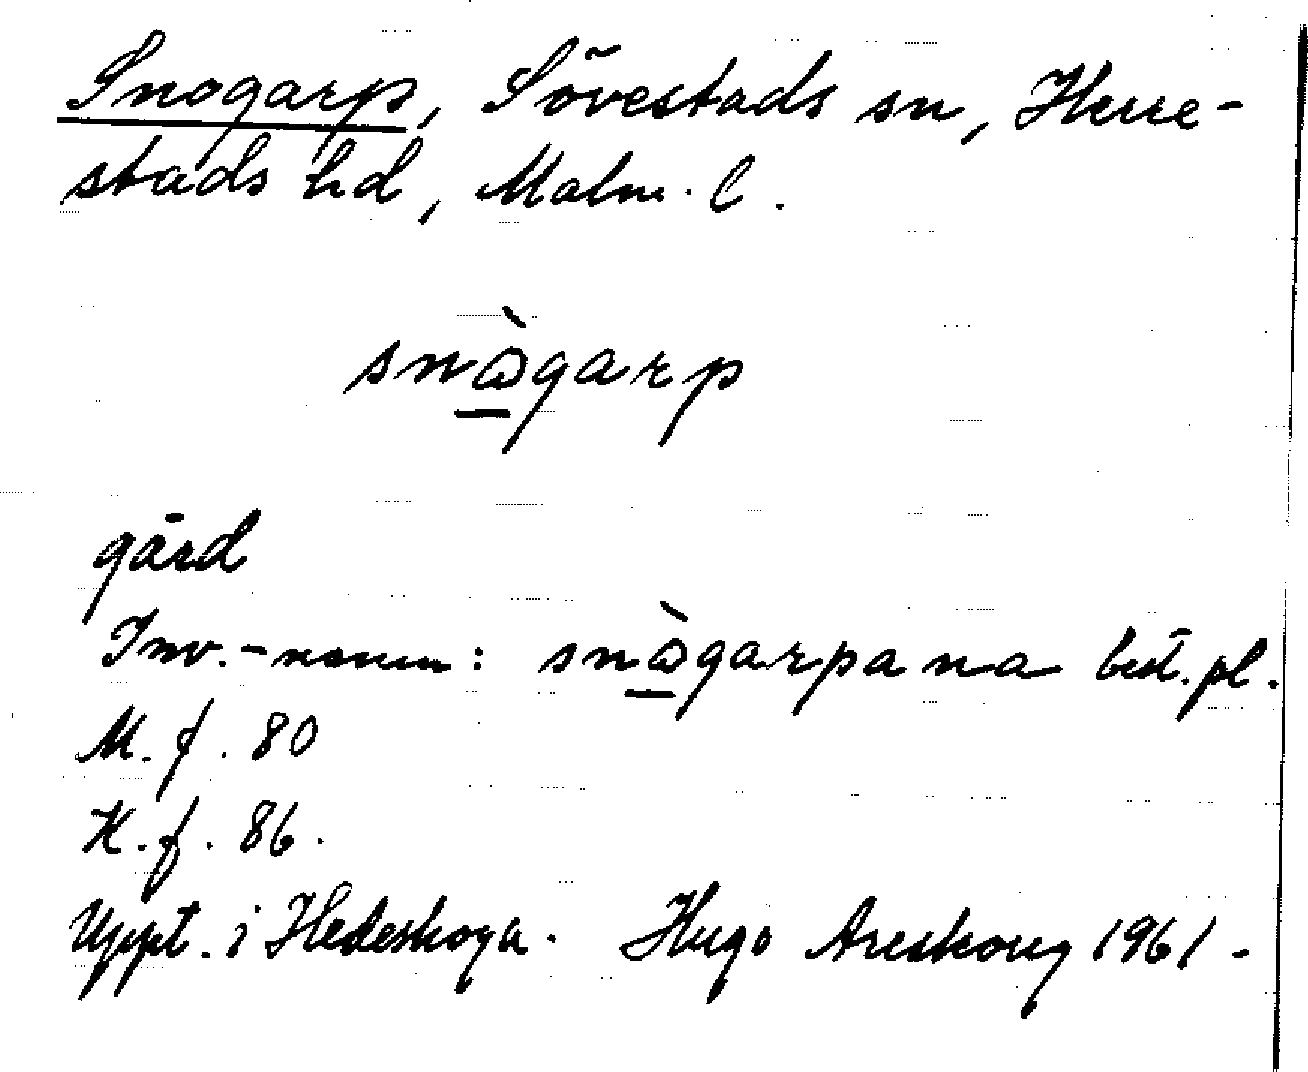 Snogarp, Sövestads sn, Herre-
stads hd, Malm. l.
snàgarp
gård
Inv.-namn: snàgarpana best. pl.
M. f. 80
K. f. 86.
Uppt. i Hedeskoga. Hugo Areskoug 1961.